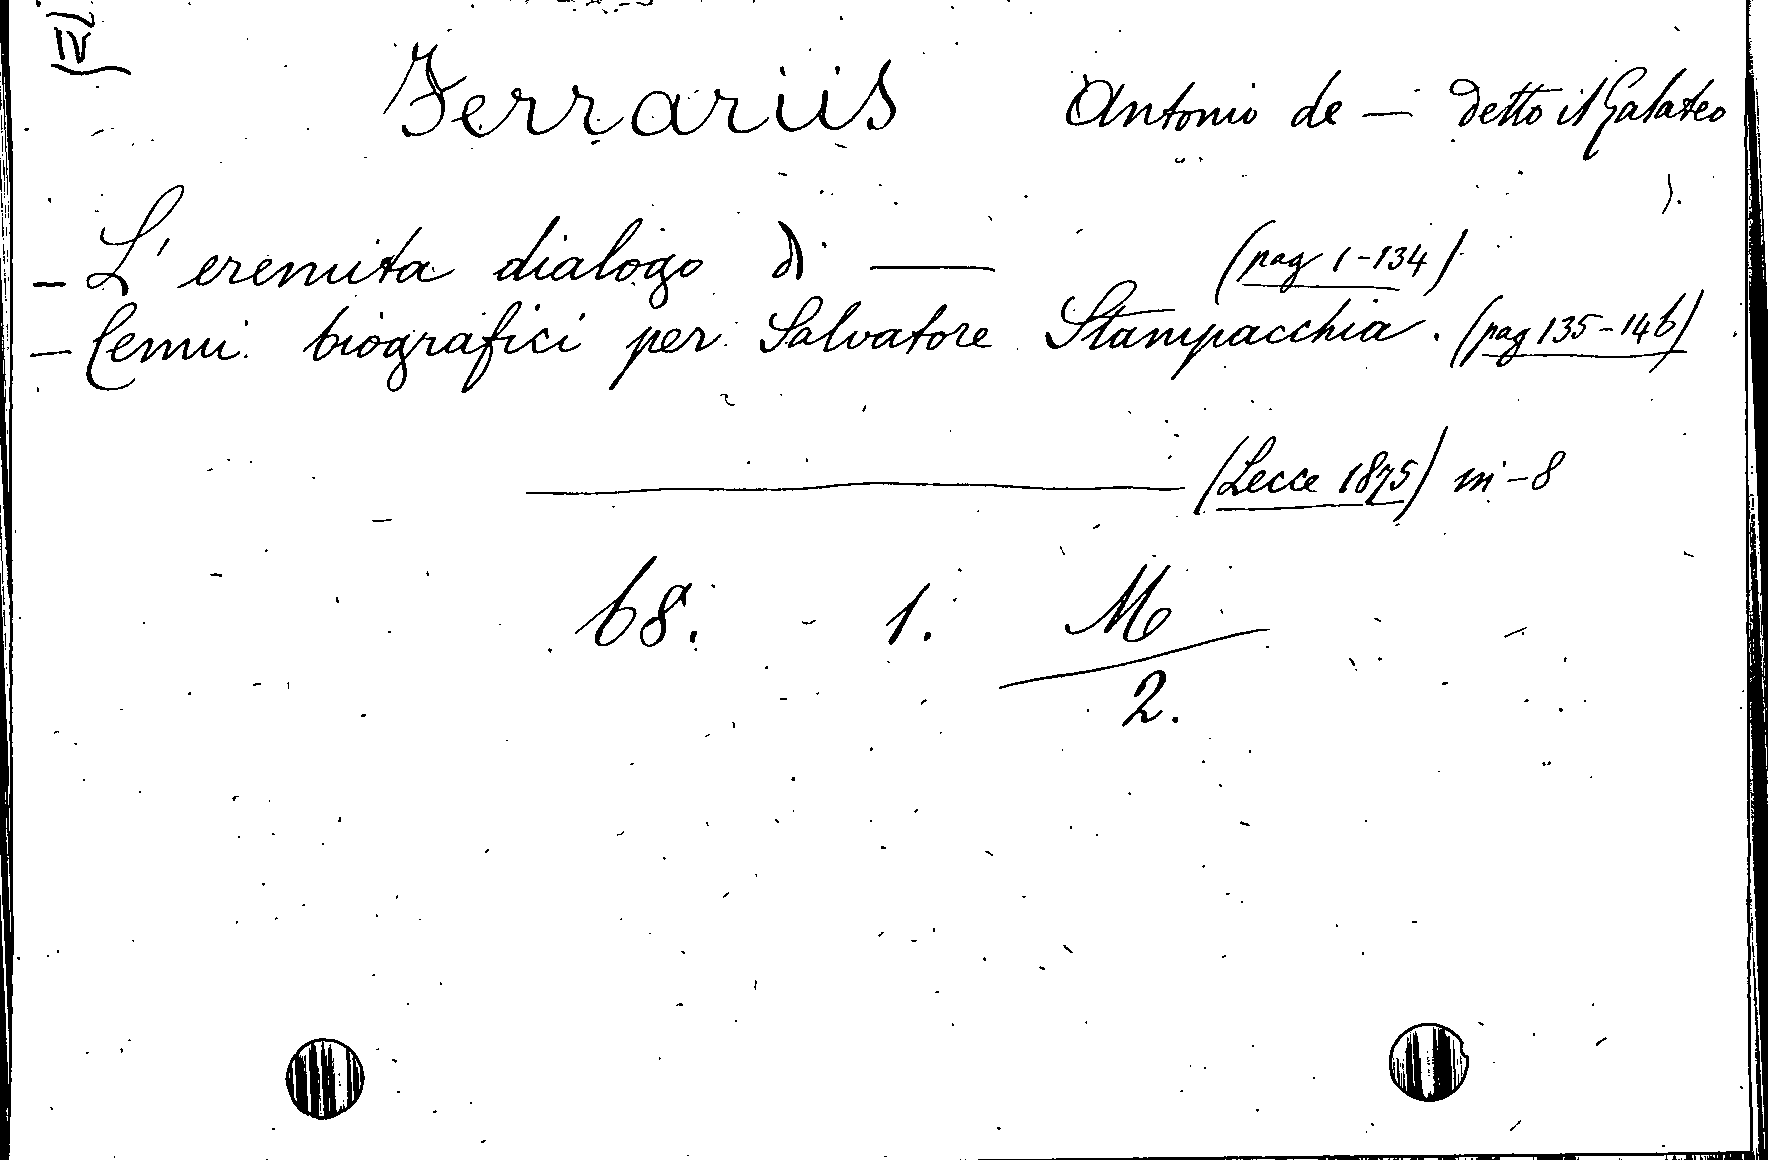 IV
Ferrariis Antonio de — detto il Galateo
– L' eremita dialogo di —— (pag 1-134)
– Cenni biografici per Salvatore Stampacchia. (pag 135-146)
—— (Lecce 1875) in-8
68. 1. M
2.